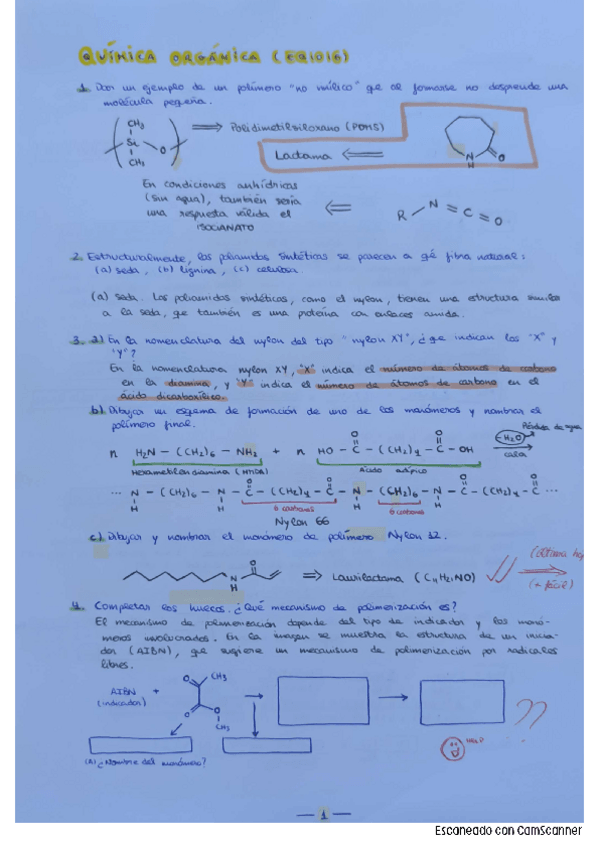 QUÍMICA ORGÁNICA (EQ1016)
1. Dar un ejemplo de un polímero "no vinílico" qe al formarse no desprende una
molécula pequeña.
CH3
Si O
CH3
⟹ Polidimetilsiloxano (PDMS)
Lactama ⟸
N
H
O
En condiciones anhídricas
(sin agua), también sería
una respuesta válida el
ISOCIANATO
⟸ R N = C = O
2. Estructuralmente, las poliamidas sintéticas se parecen a qé fibra natural:
(a) seda, (b) lignina, (c) celulosa.
(a) seda. Las poliamidas sintéticas, como el nylon, tienen una estructura similar
a la seda, qe también es una proteína con enlaces amida.
3. a) En la nomenclatura del nylon del tipo "nylon XY", ¿qe indican las "X" y
"Y"?
En la nomenclatura nylon XY, "X" indica el número de átomos de carbono
en la diamina, y "Y" indica el número de átomos de carbono en el
ácido dicarboxílico.
b) Dibuja un esquema de formación de uno de los monómeros y nombrar el
polímero final.
Pérdida de agua
n H2N - (CH2)6 - NH2 + n HO - C - (CH2)4 - C - OH
O O
-H2O
calor
Hexametilendiamina (HMDA)
Ácido adípico
... N - (CH2)6 - N - C - (CH2)4 - C - N - (CH2)6 - N - C - (CH2)4 - C ...
H H O O H H O O
6 carbonos 6 carbonos
Nylon 66
c) Dibujar y nombrar el monómero de polímero Nylon 12.
N
H
O
⟹ Laurilactama
(+ fácil)
4. Completar los huecos. ¿Qué mecanismo de polimerización es?
El mecanismo de polimerización depende del tipo de indicador y los monó-
meros involucrados. En la imagen se muestra la estructura de un inicia-
dor (AIBN), qe sugiere un mecanismo de polimerización por radicales
libres.
AIBN +
(indicador)
O CH3
O O
CH3
??
(A) ¿Nombre del monómero?
— 1 —
Escaneado con CamScanner